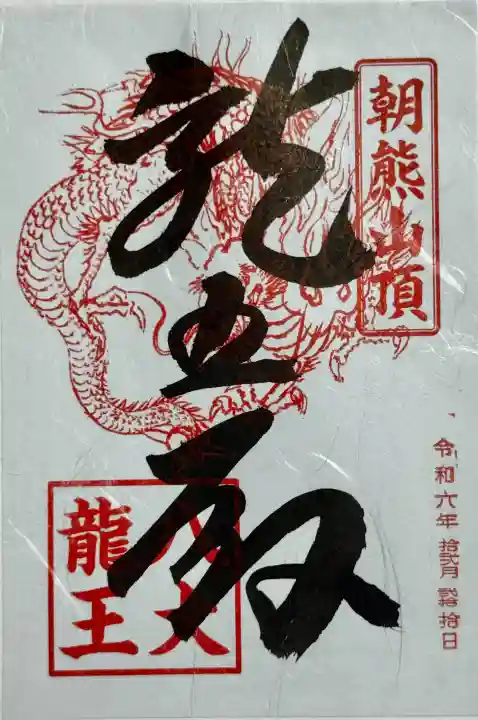 朝熊山頂
龍
八大
龍王
令和六年 拾弐月 弐拾日